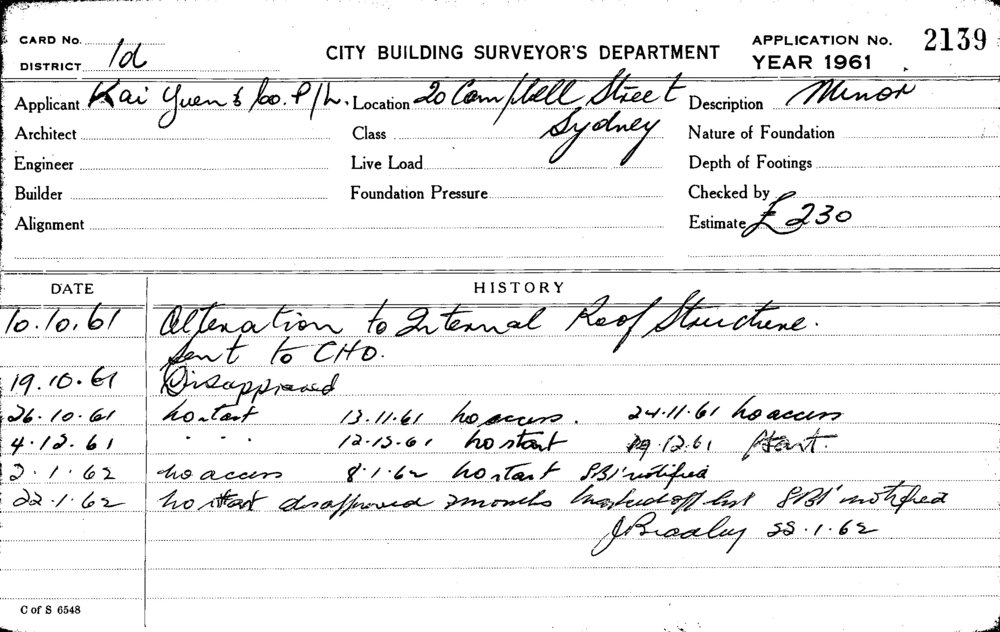 CARD No. CITY BUILDING SURVEYOR'S DEPARTMENT APPLICATION No. 2139
DISTRICT 1d YEAR 1961
Applicant Kai Yuen & Co. P/L. Location 20 Campbell Street Description Minor
Architect Class Sydney Nature of Foundation
Engineer Live Load Depth of Footings
Builder Foundation Pressure Checked by
Alignment Estimate £230
DATE HISTORY
10.10.61 Alteration to Internal Roof Structure.
Sent to CHO.
19.10.61 Disapproved
26.10.61 no start 13.11.61 no access. 24.11.61 no access
4.12.61 " " " 12.12.61 no start 29.12.61 start.
2.1.62 no access 8.1.62 no start SBI notified
22.1.62 no start disapproved 2 months marked off list SBI notified
J Bradley 22.1.62
C of S 6548